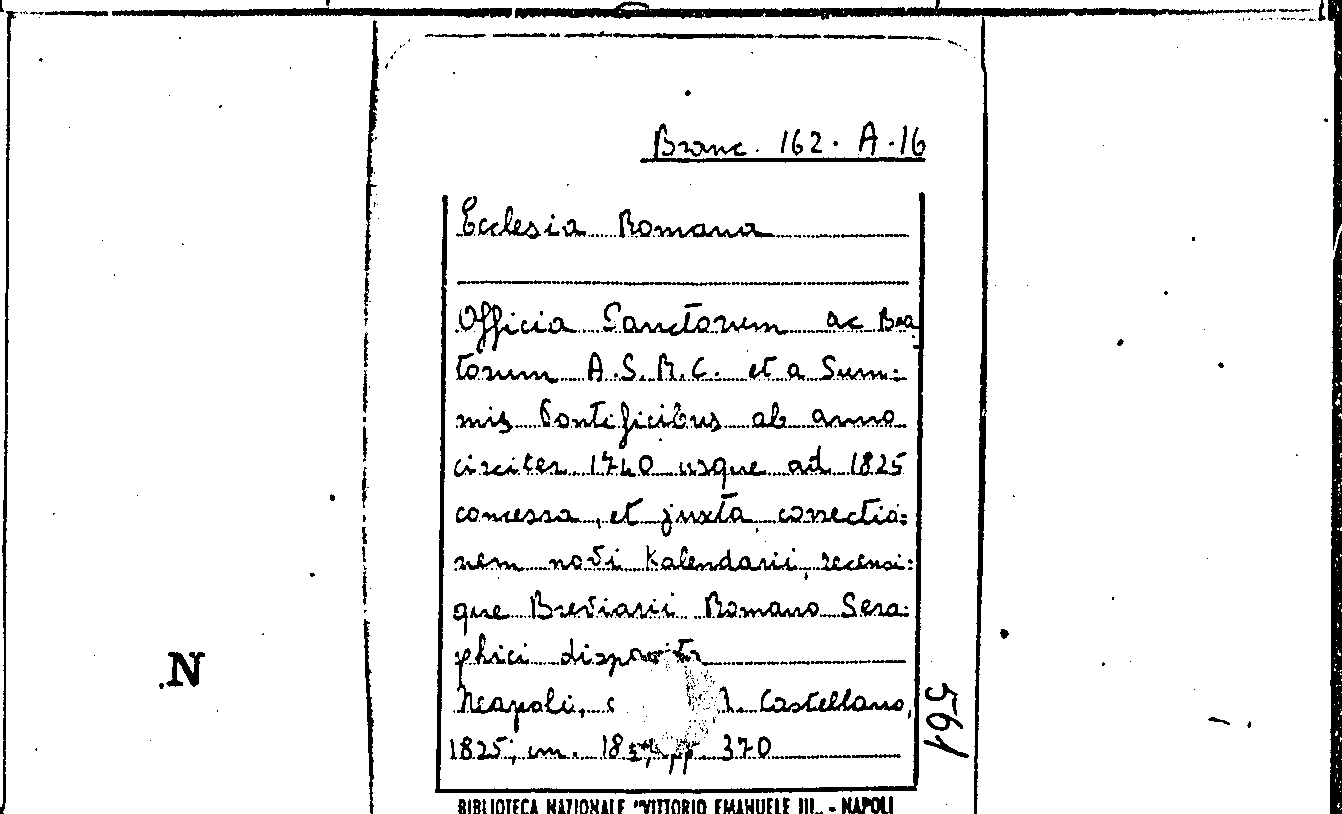 Branc. 162. A. 16
Ecclesia Romana
Officia Sanctorum ac Bea
torum A.S.R.C. et a Sum:
mis Pontificibus ab anno
circiter 1740 usque ad 1825
concessa, et juxta correctio:
nem novi Kalendarii, recensi:
que Breviarii Romano Sera:
phici disposita
Neapoli, Castellano,
1825; cm. 18 pp. 370
561
N
BIBLIOTECA NAZIONALE "VITTORIO EMANUELE III„ - NAPOLI